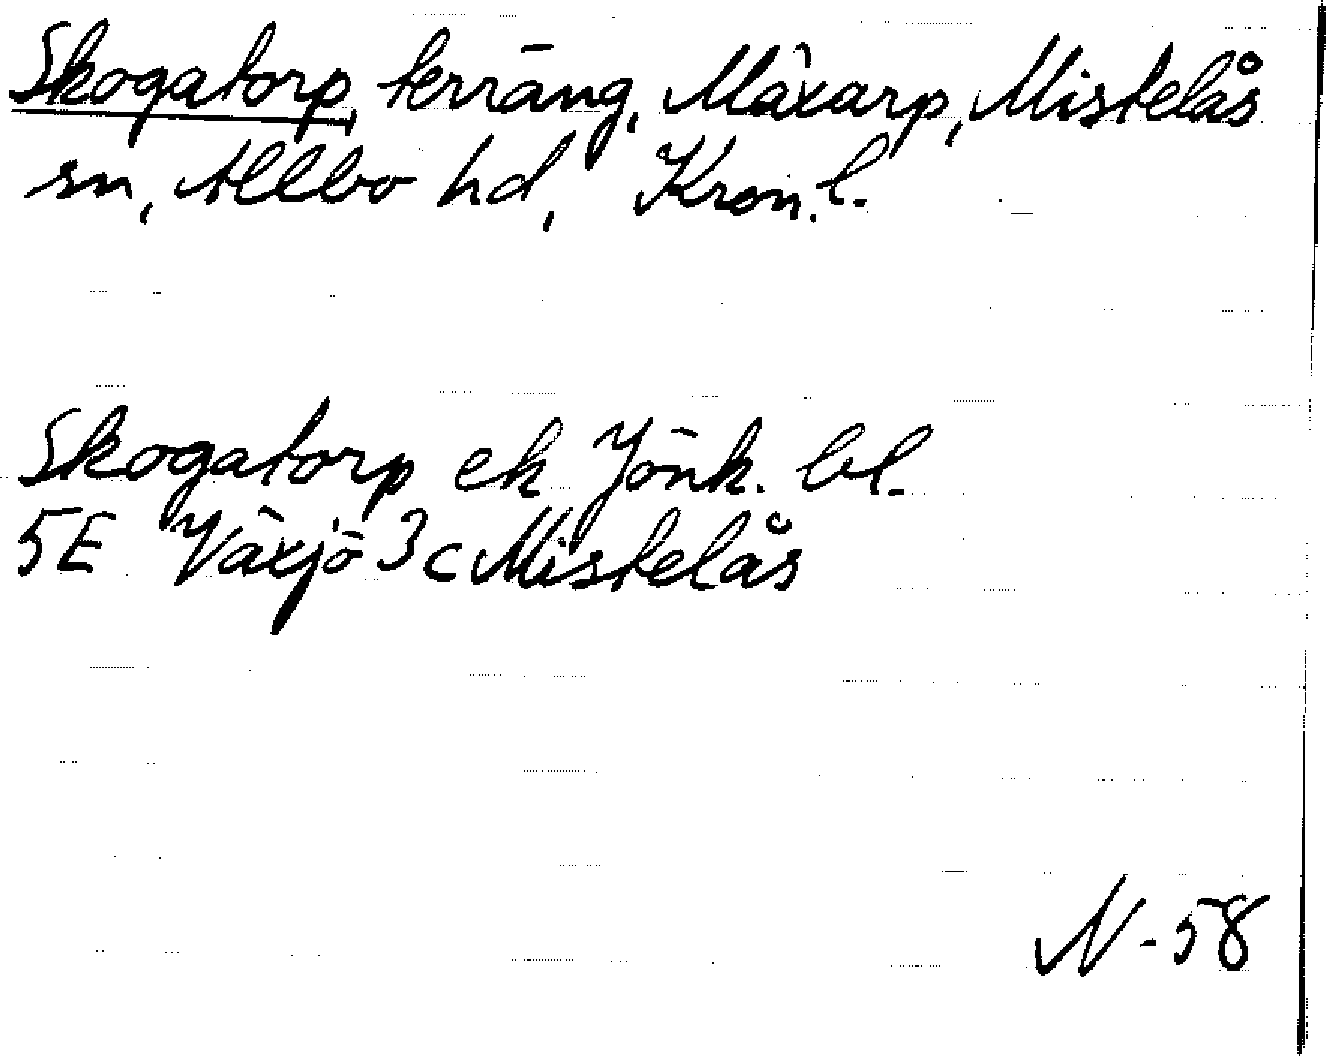 Skogatorp, terräng, Mäxarp, Mistelås
sn, Allbo hd, Kron. l.
Skogatorp ek Jönk. bl.
5E Växjö 3c Mistelås
N-58